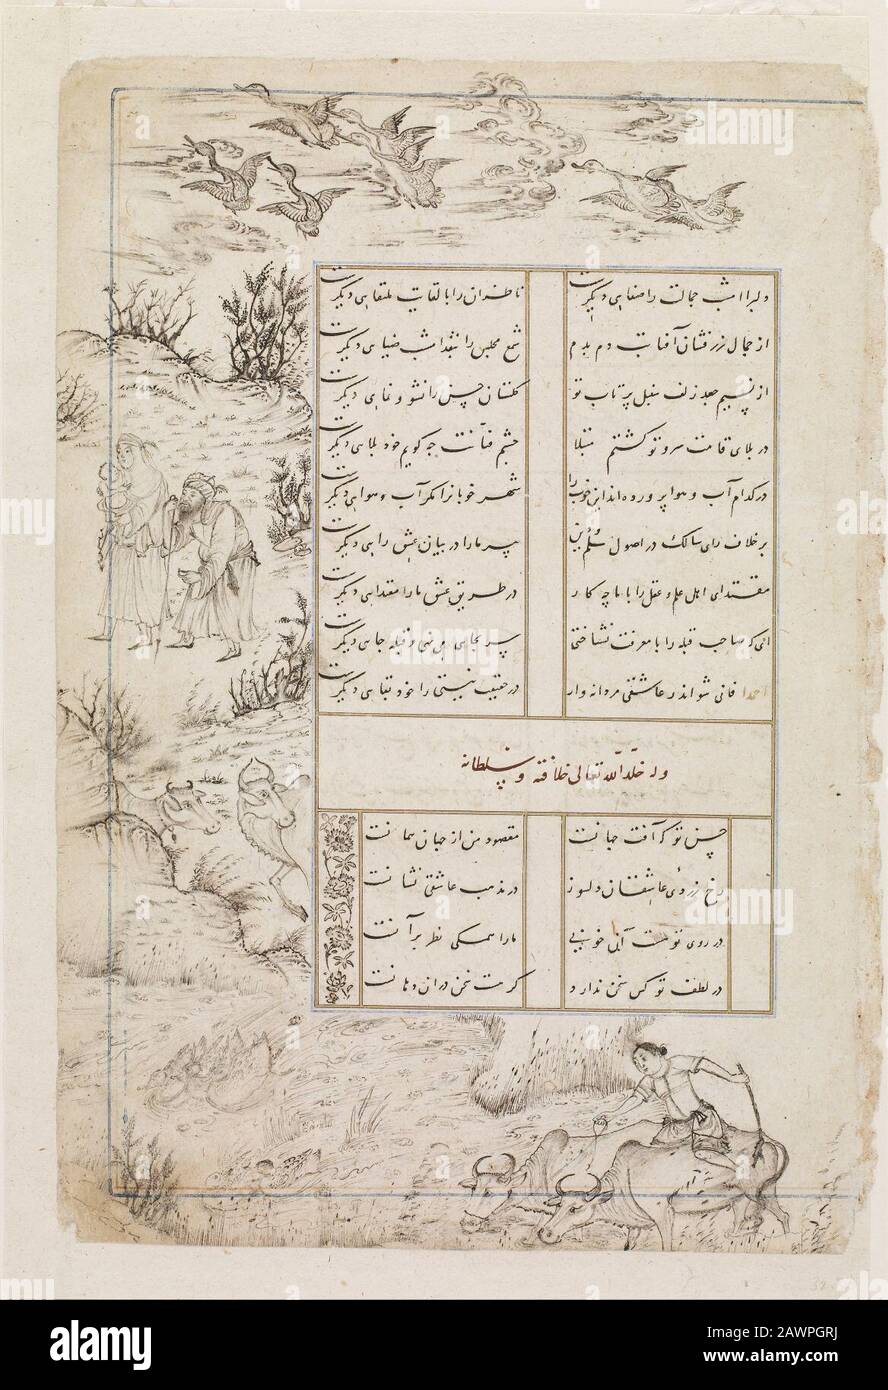 دلبرا امشب جمالت را صفایی دیگرست ناظران را با لقایت ملتقایی دیگرست
از جمال زرفشان آفتابت دم بدم شمع مجلس را بنقد امشب ضیایی دیگرست
از نسیم جعد زلف سنبل پرتاب تو گلستان حسن را نشو و نمای دیگرست
در بلای قامت سرو تو گشتم مبتلا چشم فتانت چه گویم خود بلایی دیگرست
در کدام آب و هوا پرورده اند این خوب را شهر خوبانرا مگر آب و هوایی دیگرست
بر خلاف رای سالک در اصول علم و دین پیر ما را در بیان عشق رایی دیگرست
مقتدای اهل علم و عقل را با ما چه کار در طریق عشق ما را مقتدایی دیگرست
ای که صاحب قبله را با معرفت نشناختی سر بجایی می نهی و قبله جایی دیگرست
احمدا فانی شو اندر عاشقی مردانه وار در حقیقت نیستی را خود بقایی دیگرست
وله خلد الله تعالی خلافته و سلطانه
حسن تو که آفت جهانست مقصود من از جهان همانست
رخ زردی عاشقان دلسوز در مذهب عاشقی نشانست
در روی تو هست آنی خوبی ما را همگی نظر بر آنست
در لطف تو کس سخن ندارد گر هست سخن در آن دهانست
alamy
Image ID: 2AWPGRJ
www.alamy.com